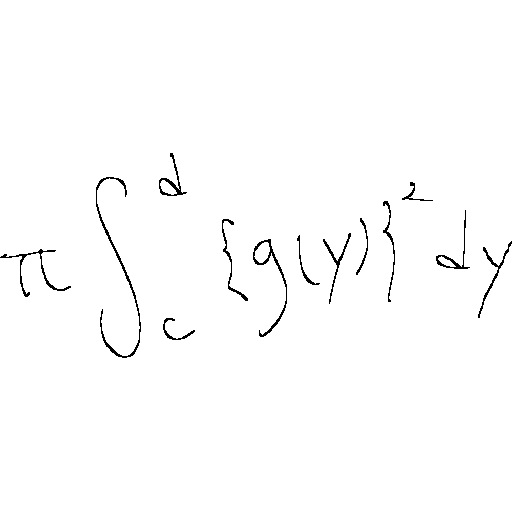 $\pi \int_{c}^{d} \{g(y)\}^{2} dy$